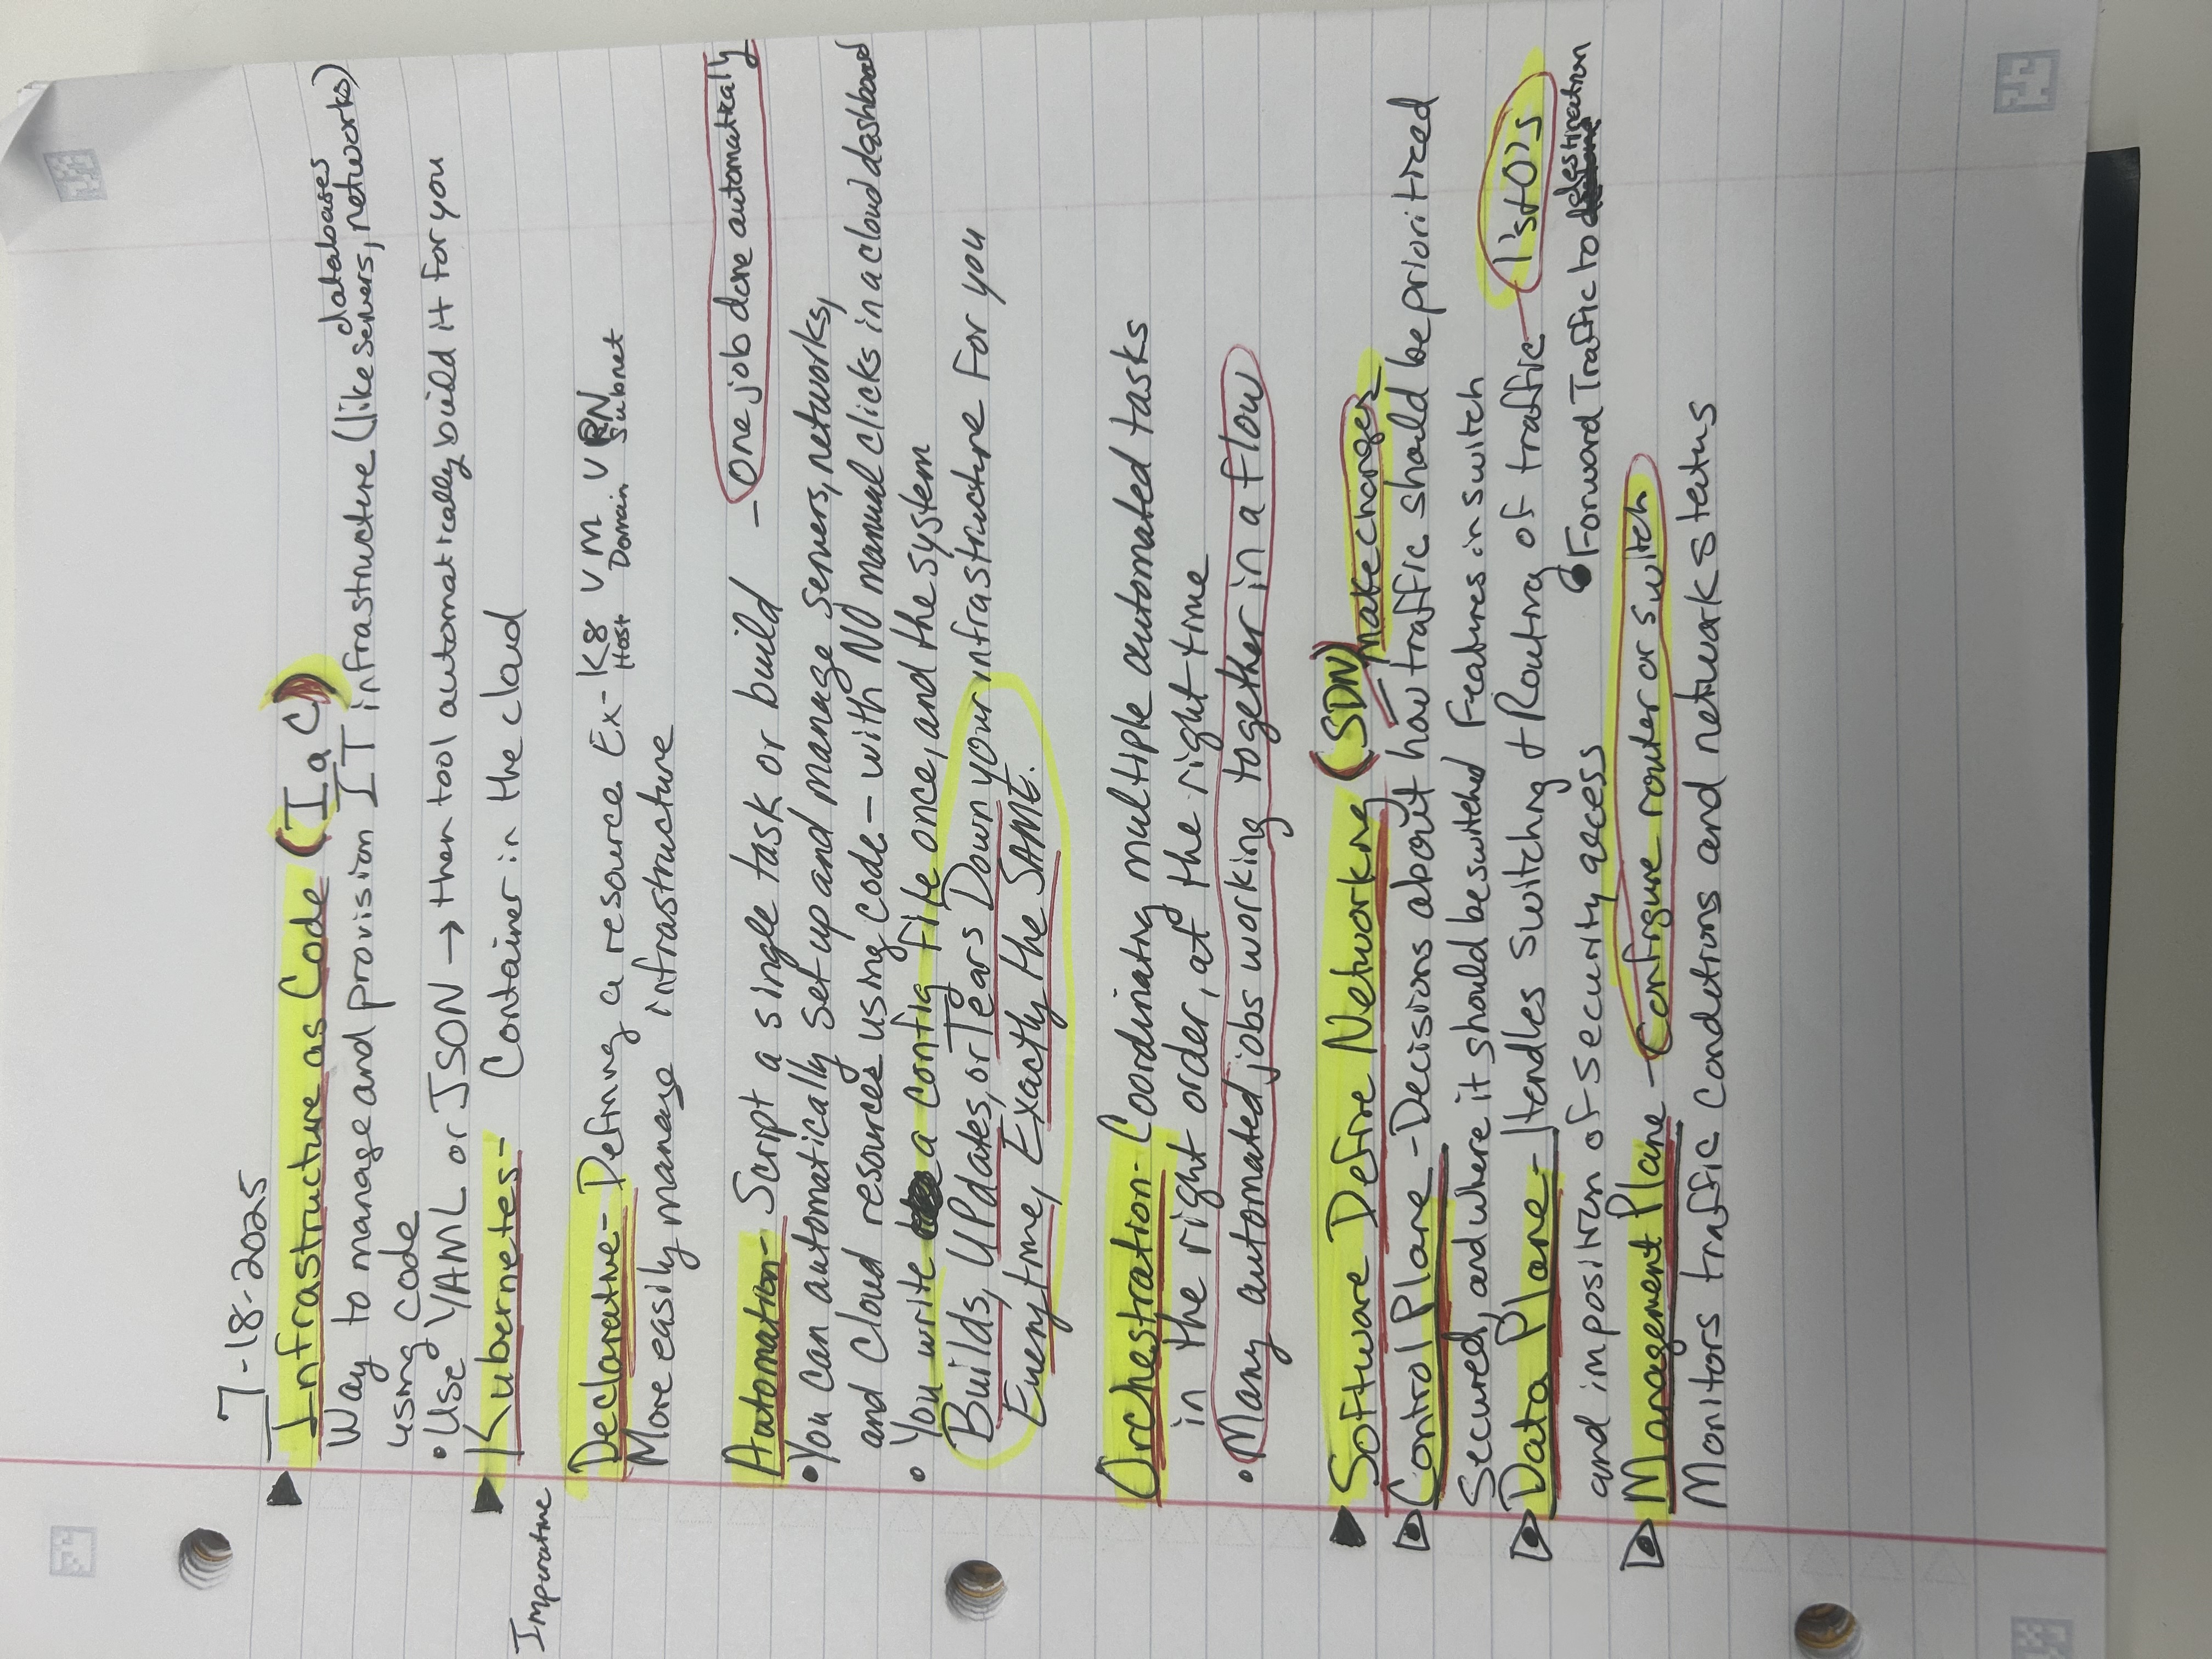 7-18-2025
Infrastructure as Code (IaC)
databases
Way to manage and provision IT infrastructure (like servers, networks)
using code
• Use YAML or JSON → then tool automatically build it for you
Kubernetes - Container in the cloud
Imperative
Declarative - Defining a resource Ex- K8 VM VPN
Host Domain Subnet
More easily manage infrastructure
Automation - Script a single task or build - One job done automatically
• You can automatically set up and manage servers, networks,
and cloud resources using code - with NO manual clicks in a cloud dashboard
• You write a config file once, and the system
Builds, UPdates, or Tears Down your infrastructure For you
Everytime, Exactly the SAME.
Orchestration - Coordinating multiple automated tasks
in the right order, at the right time
• Many automated jobs working together in a flow
Software Define Networking (SDN)
make changes
Control Plane - Decisions about how traffic should be prioritized
Secured, and where it should be switched Features in switch
Data Plane - Handles Switching + Routing of traffic - 1's + 0's
and imposition of security access • Forward Traffic to destination
Management Plane - Configure router or switch
Monitors traffic conditions and network status